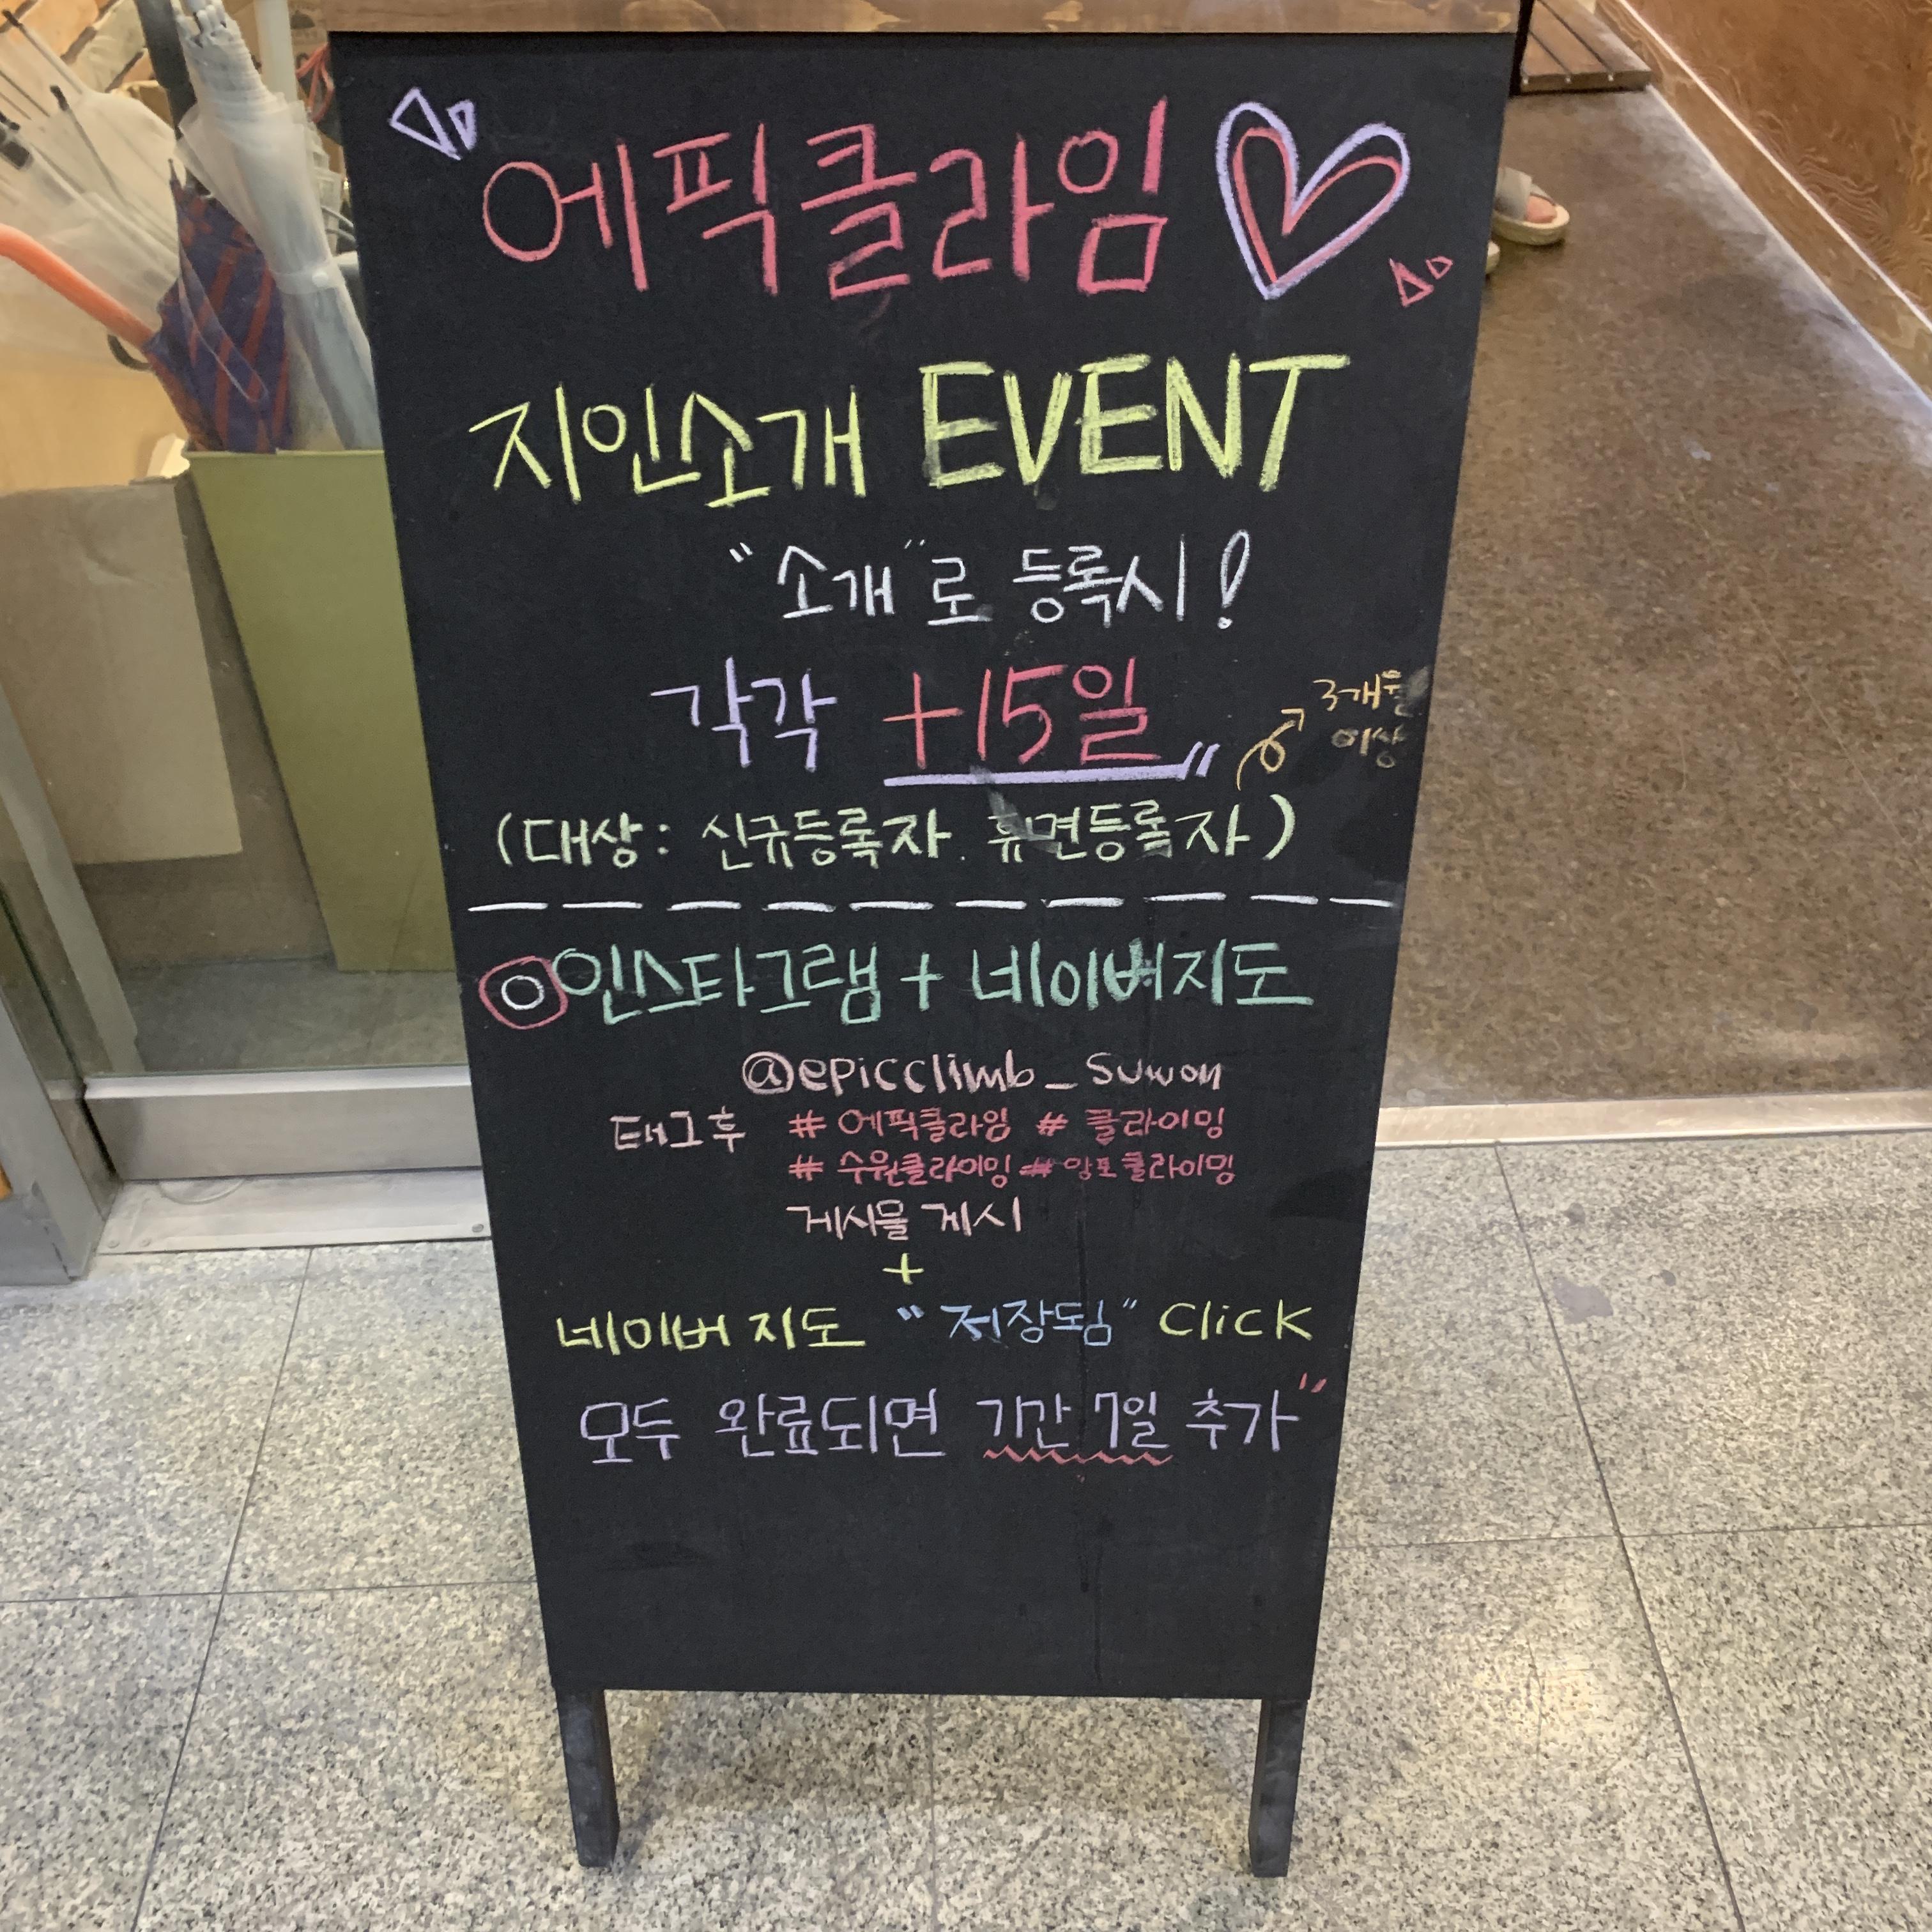 에픽클라임
지인소개 EVENT
"소개"로 등록시!
각각 +15일
3개월
이상
(대상: 신규등록자. 휴면등록자)
인스타그램 + 네이버지도
@epicclimb_suwon
태그후 #에픽클라임 #클라이밍
#수원클라이밍 #망포클라이밍
게시물 게시
+
네이버 지도 "저장됨" Click
모두 완료되면 기간 7일 추가"